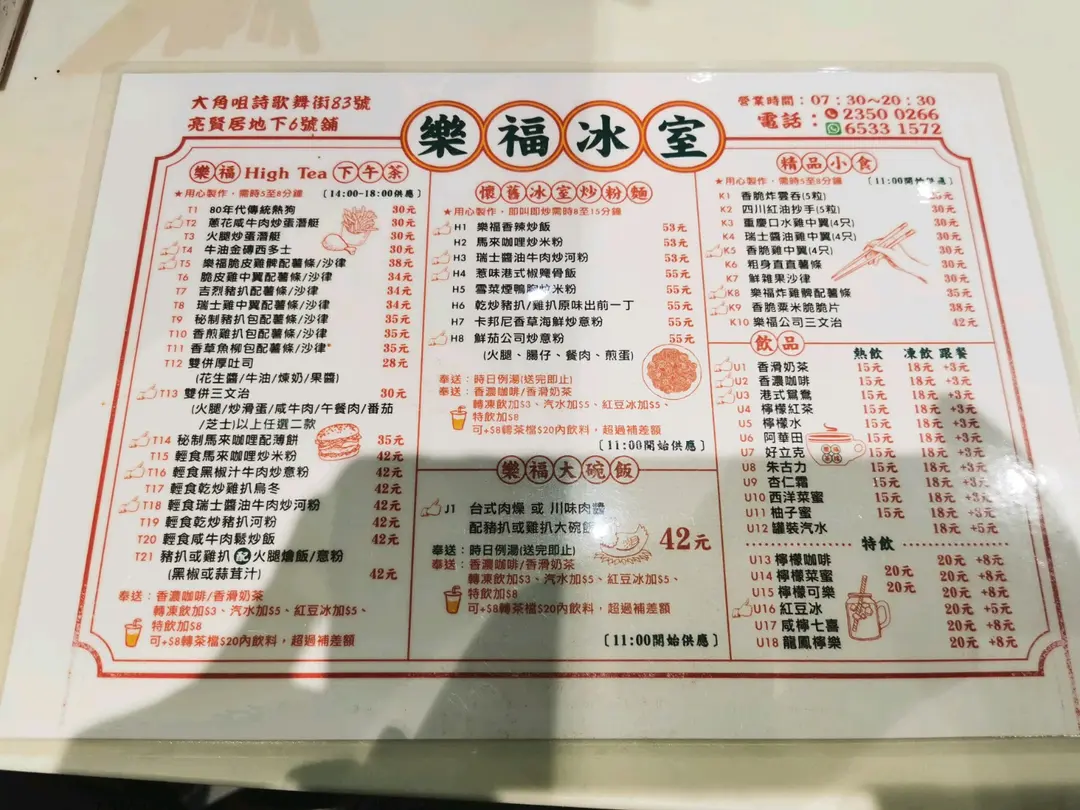 大角咀詩歌舞街83號
亮賢居地下6號舖
樂福冰室
營業時間：07：30～20：30
電話：2350 0266
6533 1572
樂福 High Tea 下午茶
★用心製作，需時5至8分鐘 〔14:00-18:00供應〕
T1 80年代傳統熱狗 30元
T2 蔥花咸牛肉炒蛋潛艇 30元
T3 火腿炒蛋潛艇 30元
T4 牛油金磚西多士 30元
T5 樂福脆皮雞髀配薯條/沙律 38元
T6 脆皮雞中翼配薯條/沙律 34元
T7 吉烈豬扒配薯條/沙律 34元
T8 瑞士雞中翼配薯條/沙律 34元
T9 秘制豬扒包配薯條/沙律 35元
T10 香煎雞扒包配薯條/沙律 35元
T11 香草魚柳包配薯條/沙律 35元
T12 雙併厚吐司 28元
(花生醬/牛油/煉奶/果醬)
T13 雙併三文治 30元
(火腿/炒滑蛋/咸牛肉/午餐肉/番茄
/芝士)以上任選二款
T14 秘制馬來咖哩配薄餅 35元
T15 輕食馬來咖哩炒米粉 42元
T16 輕食黑椒汁牛肉炒意粉 42元
T17 輕食乾炒雞扒烏冬 42元
T18 輕食瑞士醬油牛肉炒河粉 42元
T19 輕食乾炒豬扒河粉 42元
T20 輕食咸牛肉鬆炒飯 42元
T21 豬扒或雞扒配火腿燴飯/意粉
(黑椒或蒜茸汁) 42元
奉送：香濃咖啡/香滑奶茶
轉凍飲加$3、汽水加$5、紅豆冰加$5、
特飲加$8
可+$8轉茶檔$20內飲料，超過補差額
懷舊冰室炒粉麵
★用心製作，即叫即炒需時8至15分鐘
H1 樂福香辣炒飯 53元
H2 馬來咖哩炒米粉 53元
H3 瑞士醬油牛肉炒河粉 53元
H4 惹味港式椒鹽骨飯 55元
H5 雪菜煙鴨胸炆米粉 55元
H6 乾炒豬扒/雞扒原味出前一丁 55元
H7 卡邦尼香草海鮮炒意粉 55元
H8 鮮茄公司炒意粉 55元
(火腿、腸仔、餐肉、煎蛋)
奉送：時日例湯(送完即止)
奉送：香濃咖啡/香滑奶茶
轉凍飲加$3、汽水加$5、紅豆冰加$5、
特飲加$8
可+$8轉茶檔$20內飲料，超過補差額
〔11:00開始供應〕
樂福大碗飯
J1 台式肉燥 或 川味肉醬
配豬扒或雞扒大碗飯 42元
奉送：時日例湯(送完即止)
奉送：香濃咖啡/香滑奶茶
轉凍飲加$3、汽水加$5、紅豆冰加$5、
特飲加$8
可+$8轉茶檔$20內飲料，超過補差額
〔11:00開始供應〕
精品小食
★用心製作，需時5至8分鐘 〔11:00開始供應〕
K1 香脆炸雲吞(5粒)
K2 四川紅油抄手(5粒) 30元
K3 重慶口水雞中翼(4只) 30元
K4 瑞士醬油雞中翼(4只) 30元
K5 香脆雞中翼(4只) 30元
K6 粗身直直薯條 30元
K7 鮮雜果沙律 30元
K8 樂福炸雞髀配薯條 35元
K9 香脆粟米脆脆片 38元
K10 樂福公司三文治 42元
飲品
熱飲 凍飲 跟餐
U1 香滑奶茶 15元 18元 +3元
U2 香濃咖啡 15元 18元 +3元
U3 港式鴛鴦 15元 18元 +3元
U4 檸檬紅茶 15元 18元 +3元
U5 檸檬水 15元 18元 +3元
U6 阿華田 15元 18元 +3元
U7 好立克 15元 18元 +3元
U8 朱古力 15元 18元 +3元
U9 杏仁霜 15元 18元 +3元
U10 西洋菜蜜 15元 18元 +3元
U11 柚子蜜 15元 18元 +3元
U12 罐裝汽水 18元 +5元
特飲
U13 檸檬咖啡 20元 +8元
U14 檸檬菜蜜 20元 20元 +8元
U15 檸檬可樂 20元 20元 +8元
U16 紅豆冰 20元 +5元
U17 咸檸七喜 20元 +8元
U18 龍鳳檸樂 20元 +8元